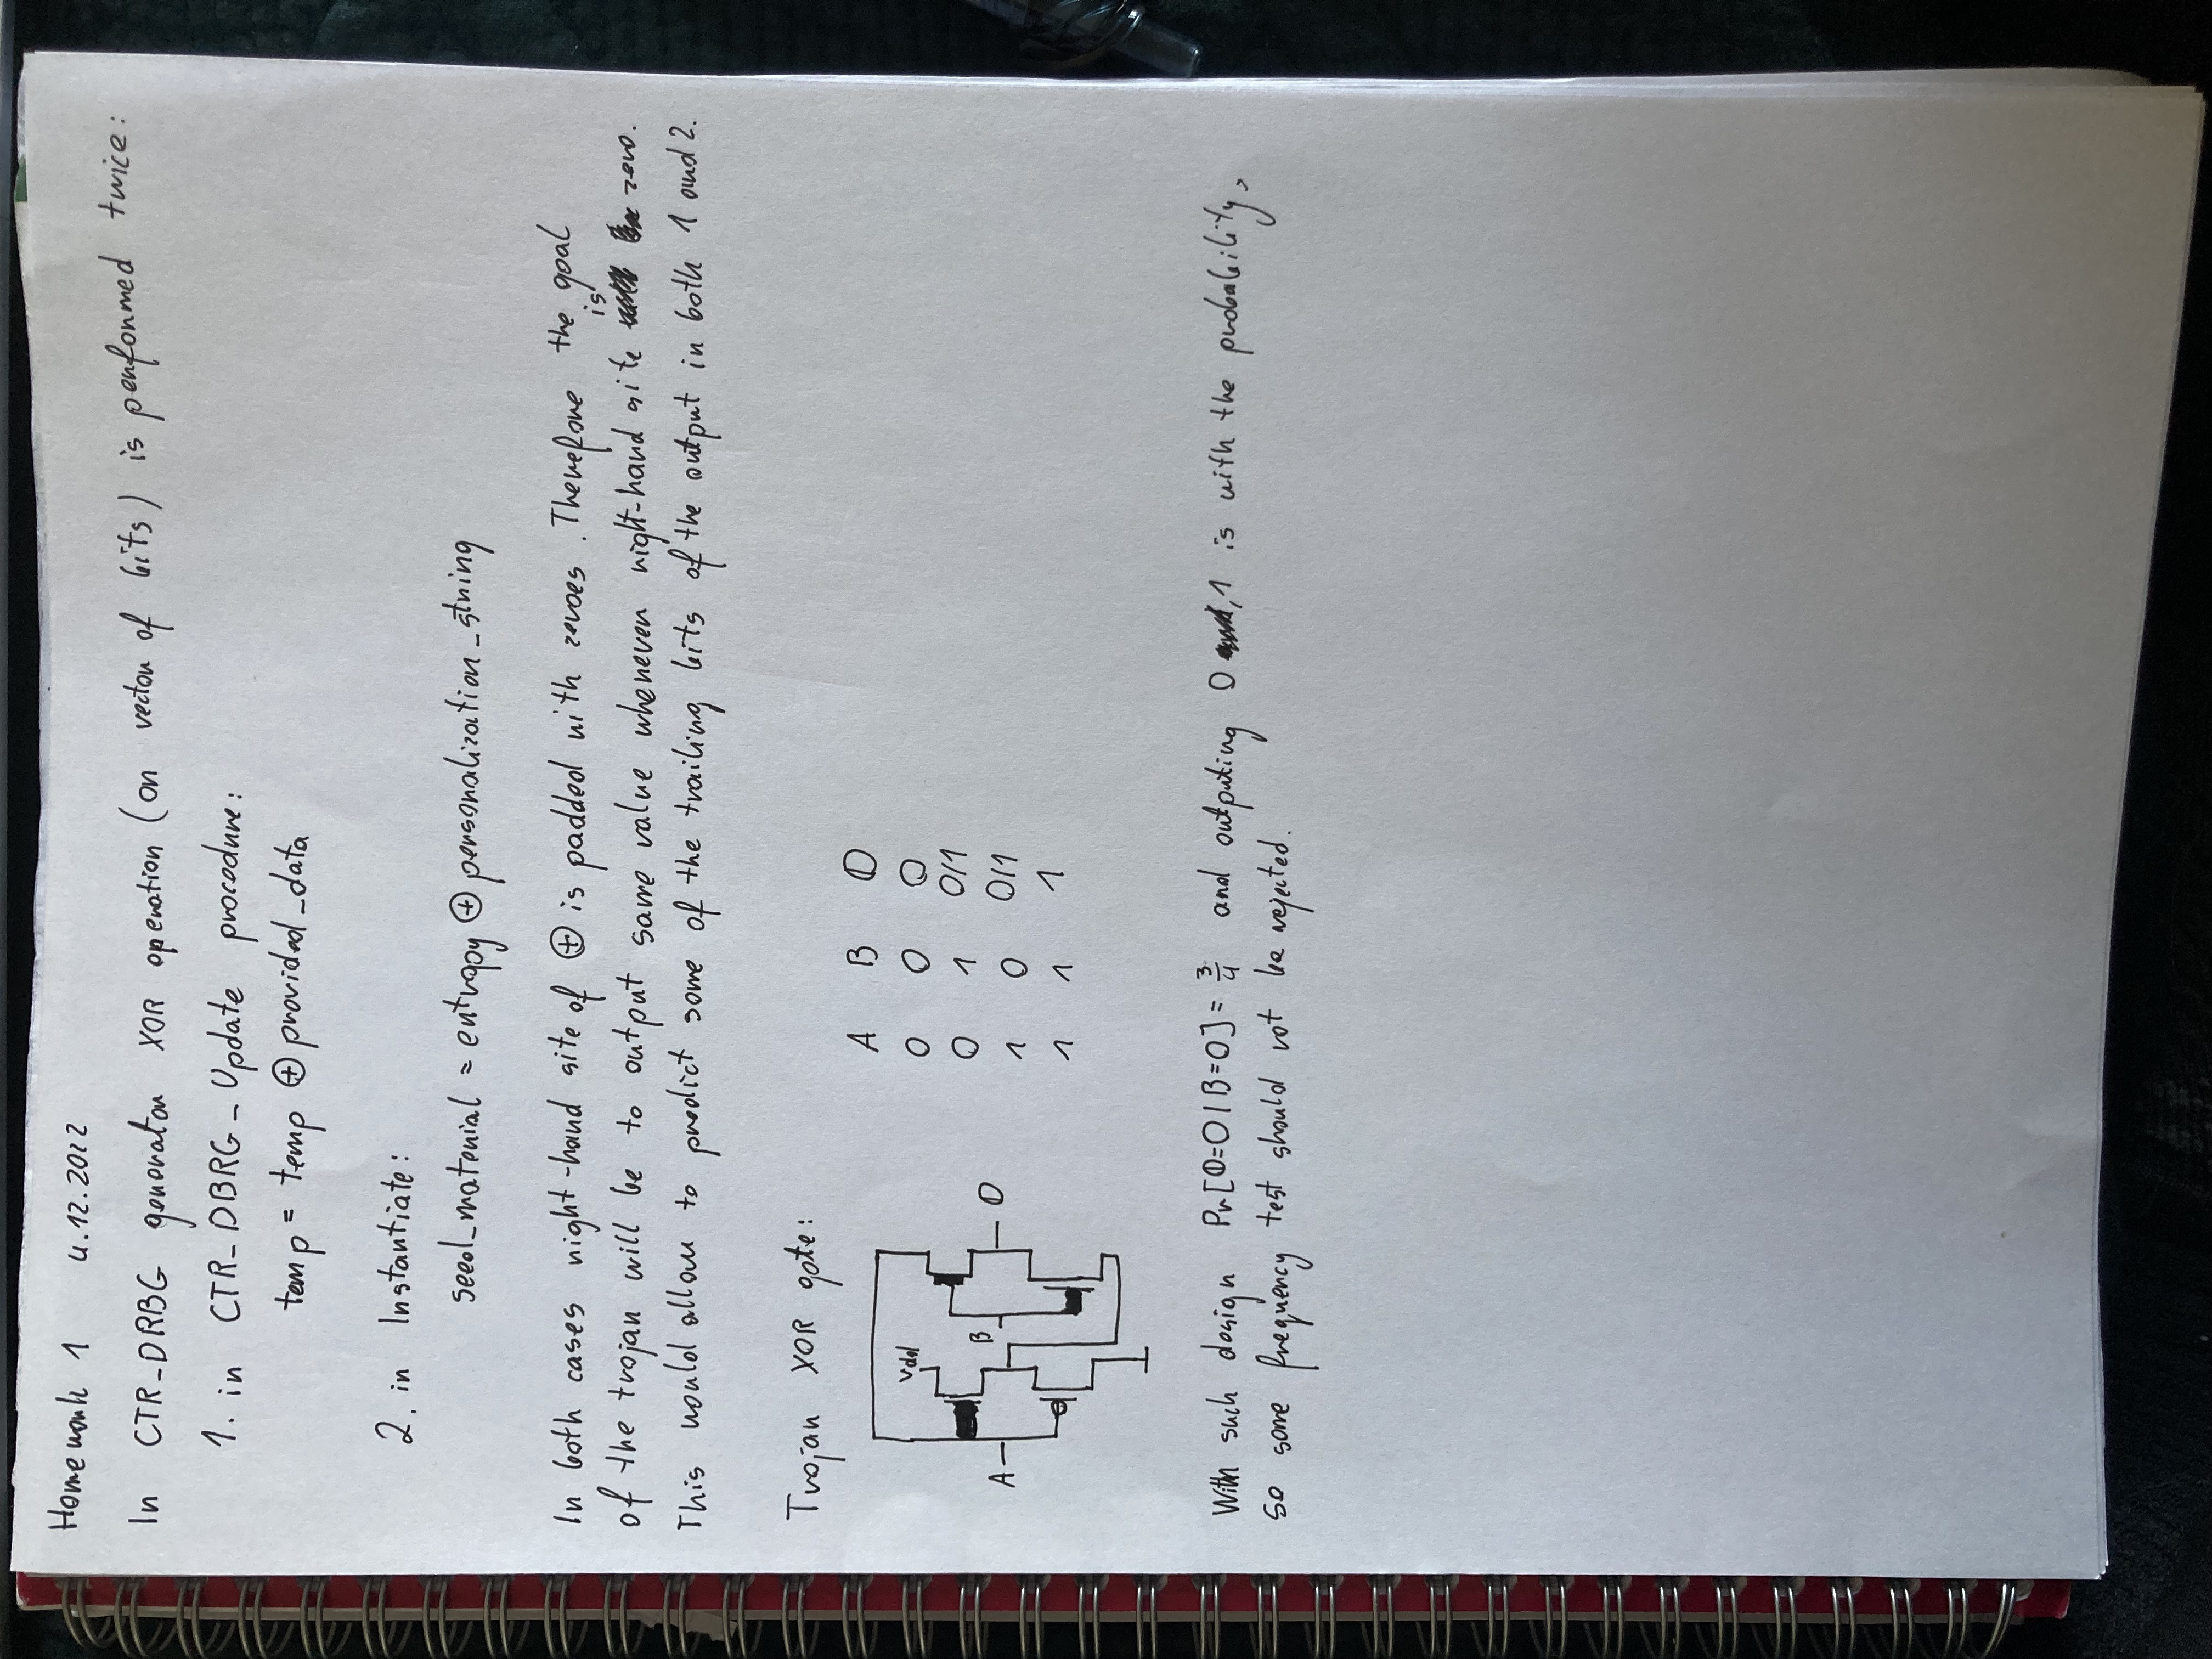 Homework 1 4.12.2022
In CTR_DRBG generator XOR operation (on vector of bits) is performed twice:
1. in CTR_DBRG_Update procedure:
temp = temp ⊕ provided_data
2. in Instantiate:
seed_material = entropy ⊕ personalization_string
In both cases right-hand site of ⊕ is padded with zeroes. Therefore the goal
of the trojan will be to output same value whenever right-hand site is zero.
This would allow to predict some of the trailing bits of the output in both 1 and 2.
Trojan XOR gate:
A B O
0 0 0
0 1 0/1
1 0 0/1
1 1 1
Vdd
B
A
O
With such design Pr[O=0|B=0]=3/4 and outputing 0, 1 is with the probability,
so some frequency test should not be rejected.